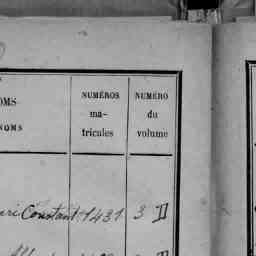 OMS
NOMS
NUMÉROS
ma-
tricules
NUMÉRO
du
volume
Constant 1431 3 II